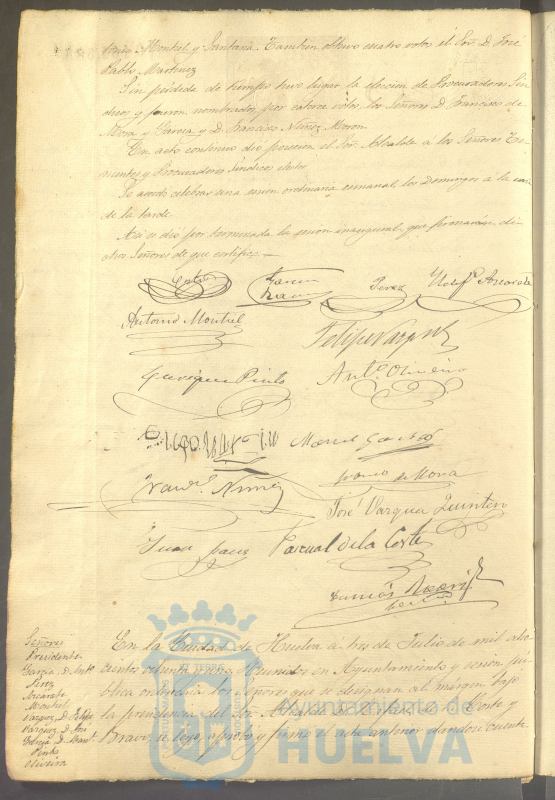 tonio Montiel y Santana. Tambien obtuvo cuatro votos el Sor. D. José
Pablo Martinez
Sin pérdida de tiempo tuvo lugar la eleccion de Procuradores Sín
dicos y fueron nombrados por catorce votos los Señores D. Francisco de
Mora y Garcia y D. Francisco Nuñez Moron
En acto continuo dió posesion el Sor. Alcalde a los Señores Te-
nientes y Procuradores Síndicos electos
Se acordó celebrar una sesion ordinaria semanal los Domingos a la una
de la tarde
Asi se dió por terminada la sesion inaugural que firmarán di
chos Señores de que certifico.
Garcia
Perez
Antonio Montiel
Felipe Vazquez
Enrique Pinto
Anto. Oliveira
Manuel
Franco. de Mora
Nuñez
José Vazquez Quintero
Juan
Pascual de la Corte
Señores
Presidente
Garcia, D. Anto.
Perez
Azcarate
Montiel
Vazquez, D. Felipe
Vazquez D. José
Garcia, D. Manl.
Pinto
Oliveira
En la Ciudad de Huelva á tres de Julio de mil ocho
cientos ochenta y uno Reunidos en Ayuntamiento y sesion pú
blica ordinaria los Señores que se designan al márgen bajo
la presidencia del Sor. Alcalde D. de la Corte y
Bravo se leyó, aprobó y firmó el acta anterior dándose cuenta
Ayuntamiento de
HUELVA